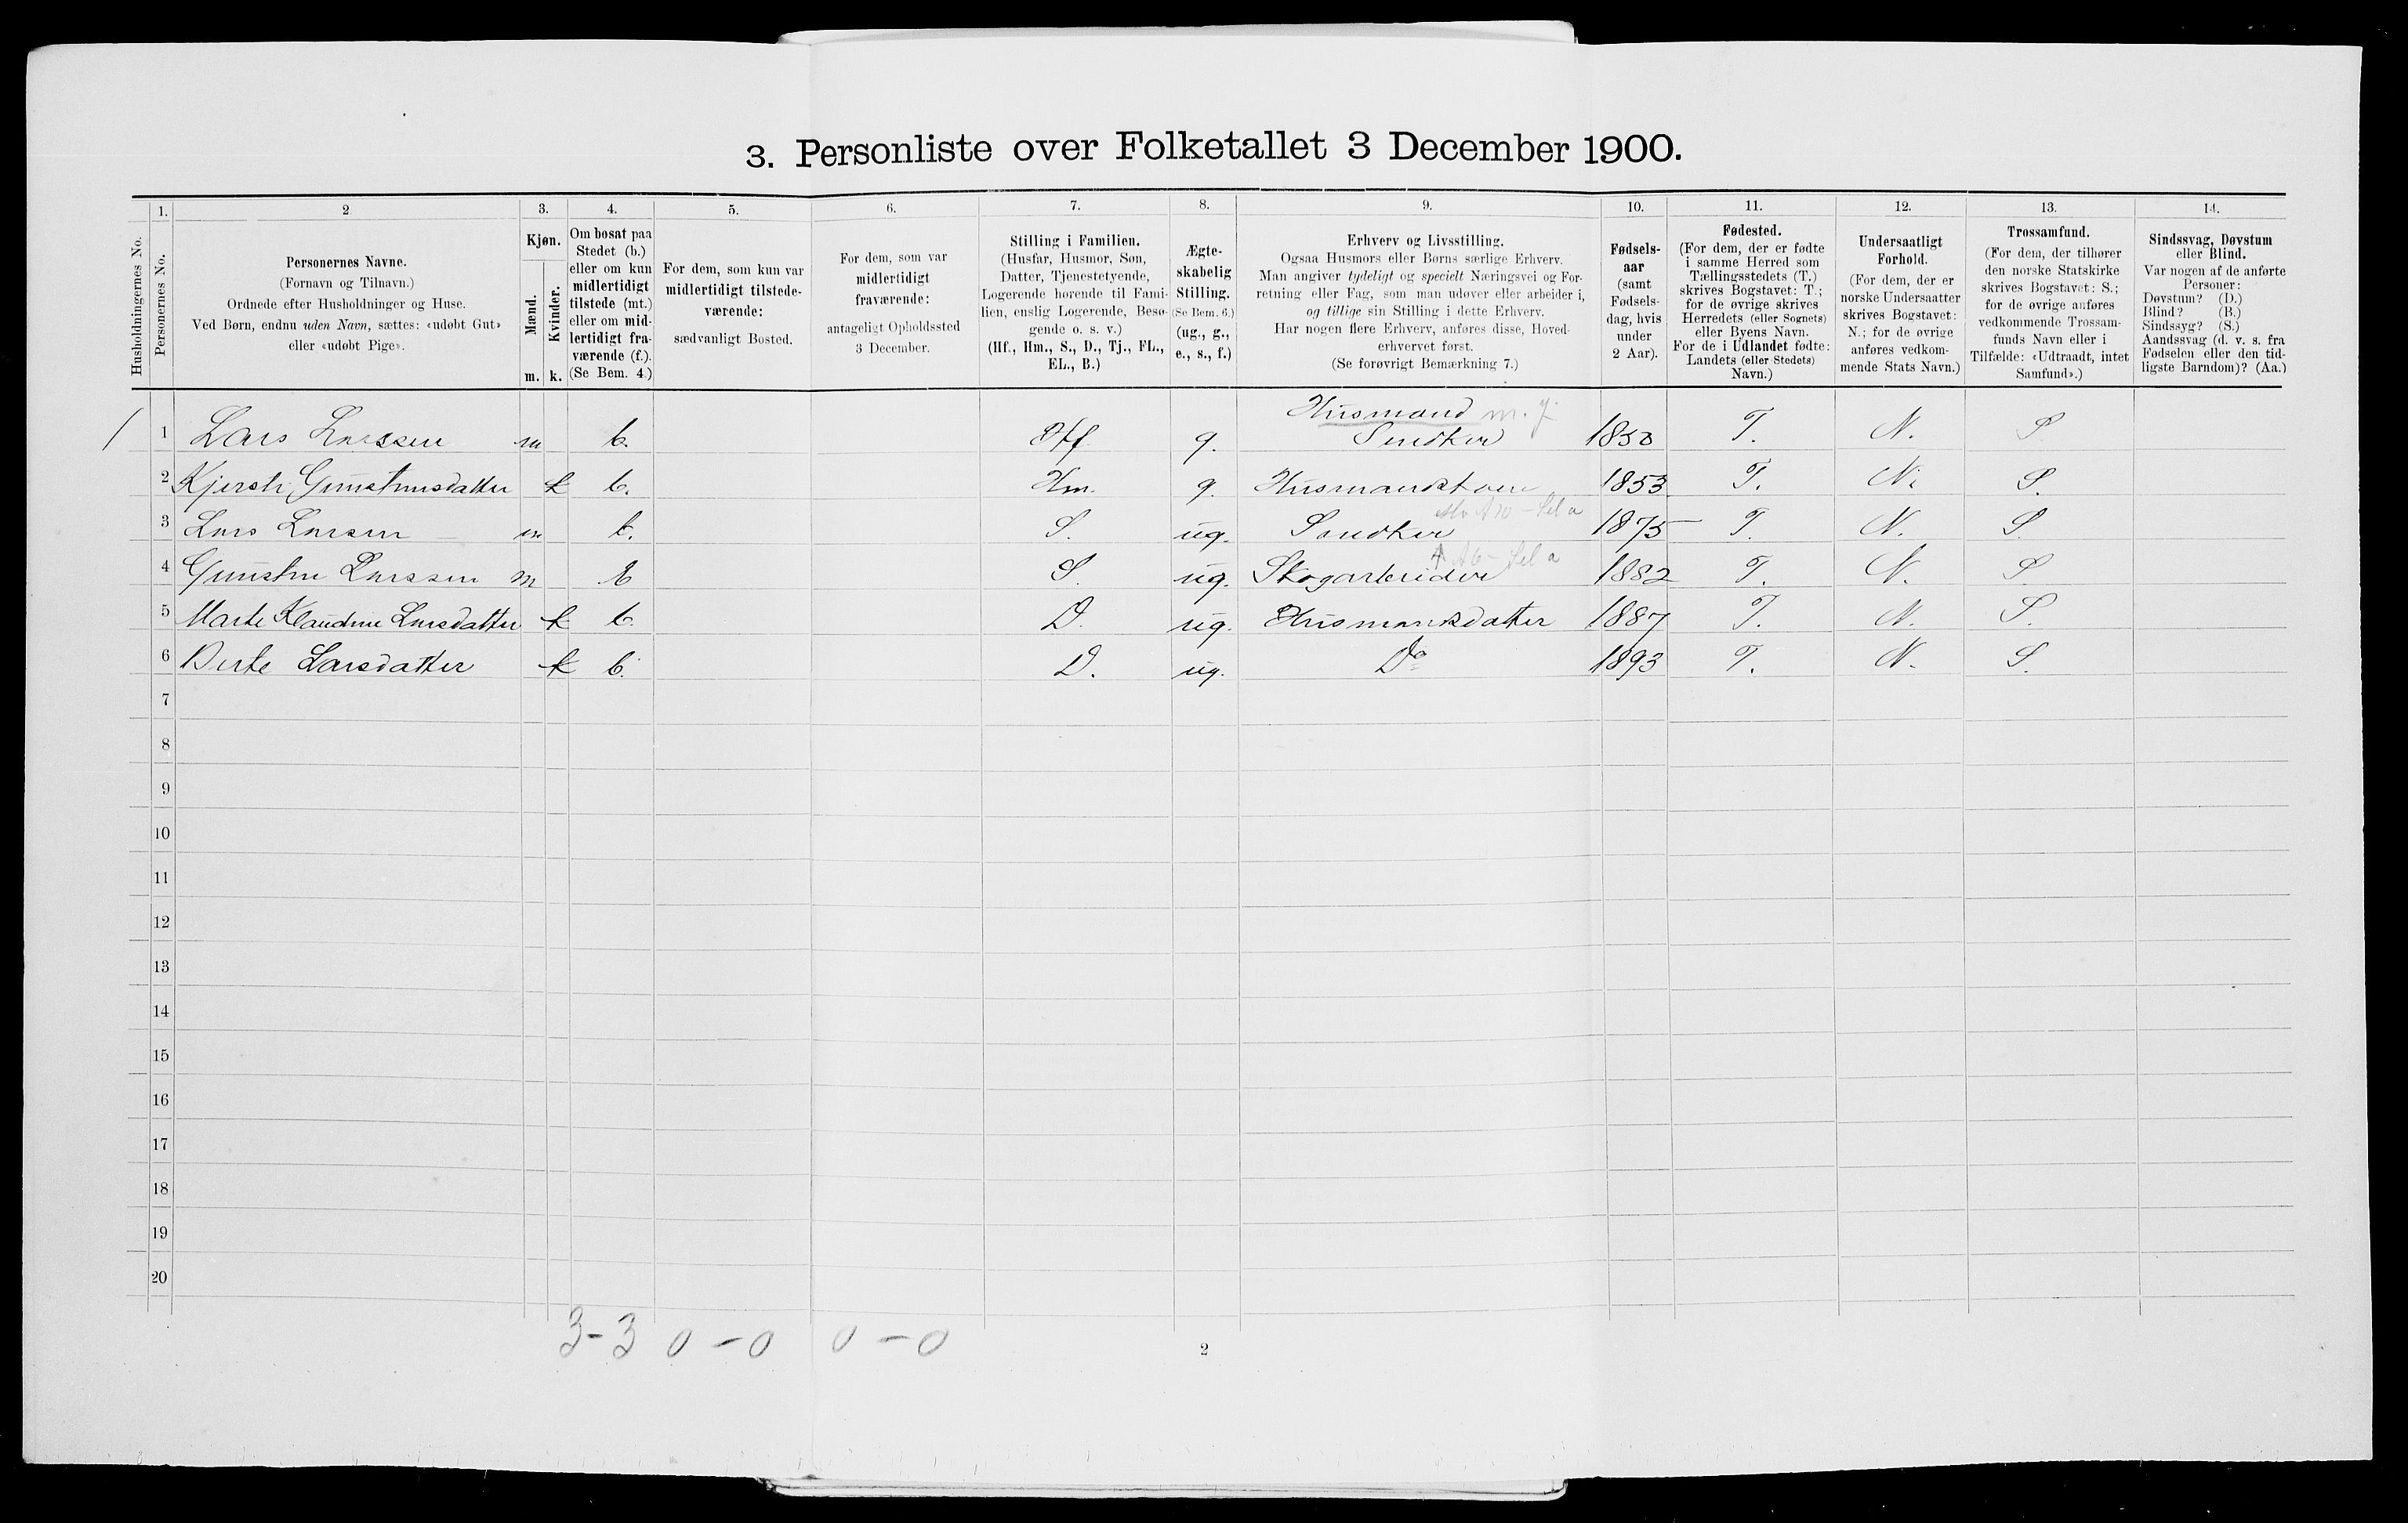 3. Personliste over Folketallet 3 December 1900.
1. 2 3. 4. 5. 6. 7. 8. 9. 10. 11. 12. 13. 14.
Husholdningernes No.
Personernes No.
Personernes Navne.
(Fornavn og Tilnavn.)
Ordnede efter Husholdninger og Huse.
Ved Børn, endnu uden Navn, sættes: «udøbt Gut»
eller «udøbt Pige».
Kjøn.
Mænd.
Kvinder.
m. k.
Om bosat paa
Stedet (b.)
eller om kun
midlertidigt
tilstede (mt.)
eller om mid-
lertidigt fra-
værende (f.).
(Se Bem. 4.)
For dem, som kun var
midlertidigt tilstede-
værende:
sædvanligt Bosted.
For dem, som var
midlertidigt
fraværende:
antageligt Opholdssted
3 December.
Stilling i Familien.
(Husfar, Husmor, Søn,
Datter, Tjenestetyende,
Logerende hørende til Fami-
lien, enslig Logerende, Besø-
gende o. s. v.)
(Hf., Hm., S., D., Tj., FL.,
EL., B.)
Ægte-
skabelig
Stilling.
(Se Bem. 6.)
(ug., g.,
e., s., f.)
Erhverv og Livsstilling.
Ogsaa Husmors eller Børns særlige Erhverv.
Man angiver tydeligt og specielt Næringsvei og For-
retning eller Fag, som man udøver eller arbeider i,
og tillige sin Stilling i dette Erhverv.
Har nogen flere Erhverv, anføres disse, Hoved-
erhvervet først.
(Se forøvrigt Bemærkning 7.)
Fødsels-
aar
(samt
Fødsels-
dag, hvis
under
2 Aar).
Fødested.
(For dem, der er fødte
i samme Herred som
Tællingsstedets (T.)
skrives Bogstavet: T.;
for de øvrige skrives
Herredets (eller Sognets)
eller Byens Navn.
For de i Udlandet fødte:
Landets (eller Stedets)
Navn.)
Undersaatligt
Forhold.
(For dem, der er
norske Undersaatter
skrives Bogstavet:
N.; for de øvrige
anføres vedkom-
mende Stats Navn.)
Trossamfund.
(For dem, der tilhører
den norske Statskirke
skrives Bogstavet: S.;
for de øvrige anføres
vedkommende Trossam-
funds Navn eller i
Tilfælde: «Udtraadt, intet
Samfund».)
Sindssvag, Døvstum
eller Blind.
Var nogen af de anførte
Personer:
Døvstum? (D.)
Blind? (B.)
Sindssyg? (S.)
Aandssvag (d. v. s. fra
Fødselen eller den tid-
ligste Barndom)? (Aa.)
Husmand m. j.
1 Lars Larssen m b. Hf g. Snedker T. N. S
2 Kjersti Gunstensdatter k b. Hm. g. 1853 T. N. S.
3 Lars Larsen m b. S. ug. Snedker 1875 T. N. S.
4 Gunsten Larssen m b S. ug. Skogarbeider 1882 T. N. S.
5 Marte Klaudine Larsdatter k b. D. ug. Husmandsdatter 1887 T. N. S.
6 Berte Larsdatter k b. D. ug. Do 1893 T. N. S.
7
8
9
10
11
12
13
14
15
16
17
18
19
20
3-3 0-0 0-0
2